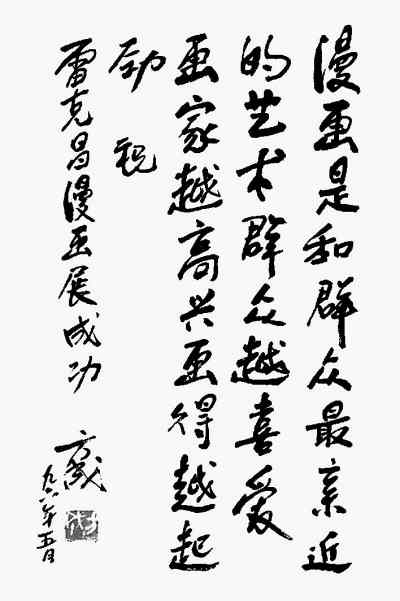 漫画是和群众最亲近
的艺术群众越喜爱
画家越高兴画得越起
劲 祝
雷克昌漫画展成功
方成
九六年五月